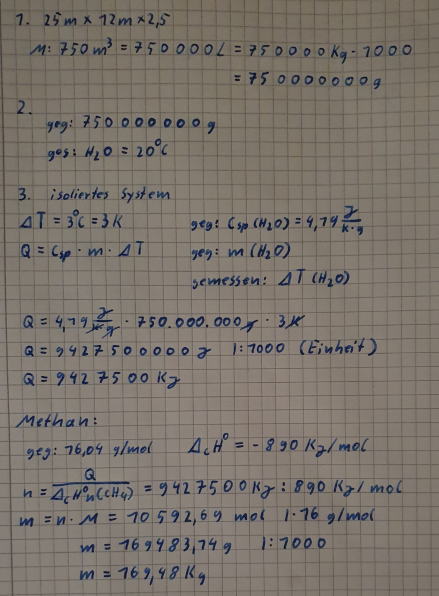 1. 25m x 12m x 2,5
M: 750 m³ = 750 000 L = 750 000 Kg · 1000
= 750 000 000 g
2.
geg: 750 000 000 g
ges: H₂O = 20°C
3. isoliertes System
ΔT = 3°C = 3K geg: Csp (H₂O) = 4,19 J/K·g
Q = Csp · m · ΔT geg: m (H₂O)
gemessen: ΔT (H₂O)
Q = 4,19 J/K·g · 750.000.000 g · 3K
Q = 9427500000 J |:1000 (Einheit)
Q = 9427500 KJ
Methan:
geg: 16,04 g/mol ΔcH° = -890 KJ/mol
n = Q/ΔcH°n(CH4) = 9427500 KJ : 890 KJ/mol
m = n · M = 10592,69 mol |·16 g/mol
m = 169483,14 g |:1000
m = 169,48 Kg